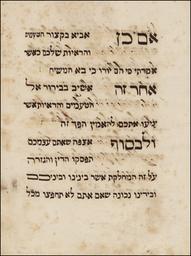 אם כן אביא בקצור הטענות
והראיות שלכם כאשר
אמרתי פי הם יורו כי בא המשיח
אחר זה אשיב בבירור אל
הטענות והראיות אשר
יניעו אתכם להאמין הפך זה
ולבסוף אצפה שאתם עצמכם
תפסקו הדין והגזרה
על זה המחלקת אשר בינינו וביניכם
ובידינו נכונה שאם אתם לא תחפצו מכל